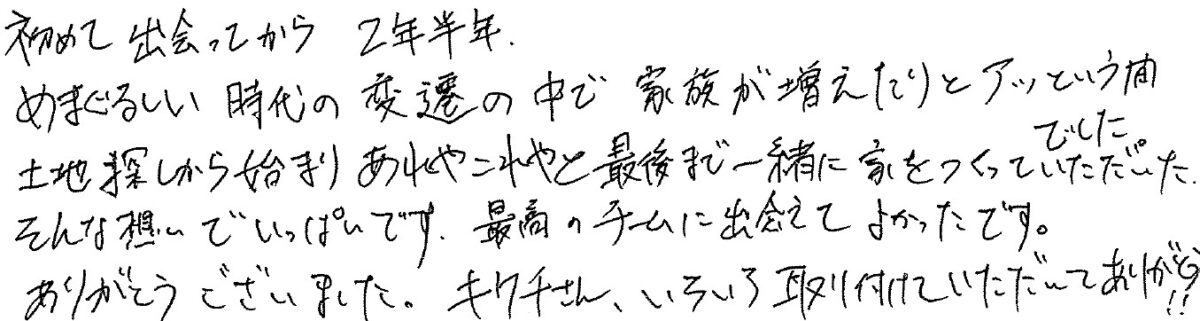 初めて出会ってから 2年半年.
めまぐるしい 時代の 変遷の中で 家族が増えたりと アッという間
でした。
土地探しから始まり あれやこれやと最後まで一緒に家をつくっていただいた.
そんな想いでいっぱいです. 最高のチームに出会えて よかったです。
ありがとうございました。 キクチさん、いろいろ取り付けていただいてありがとう!!